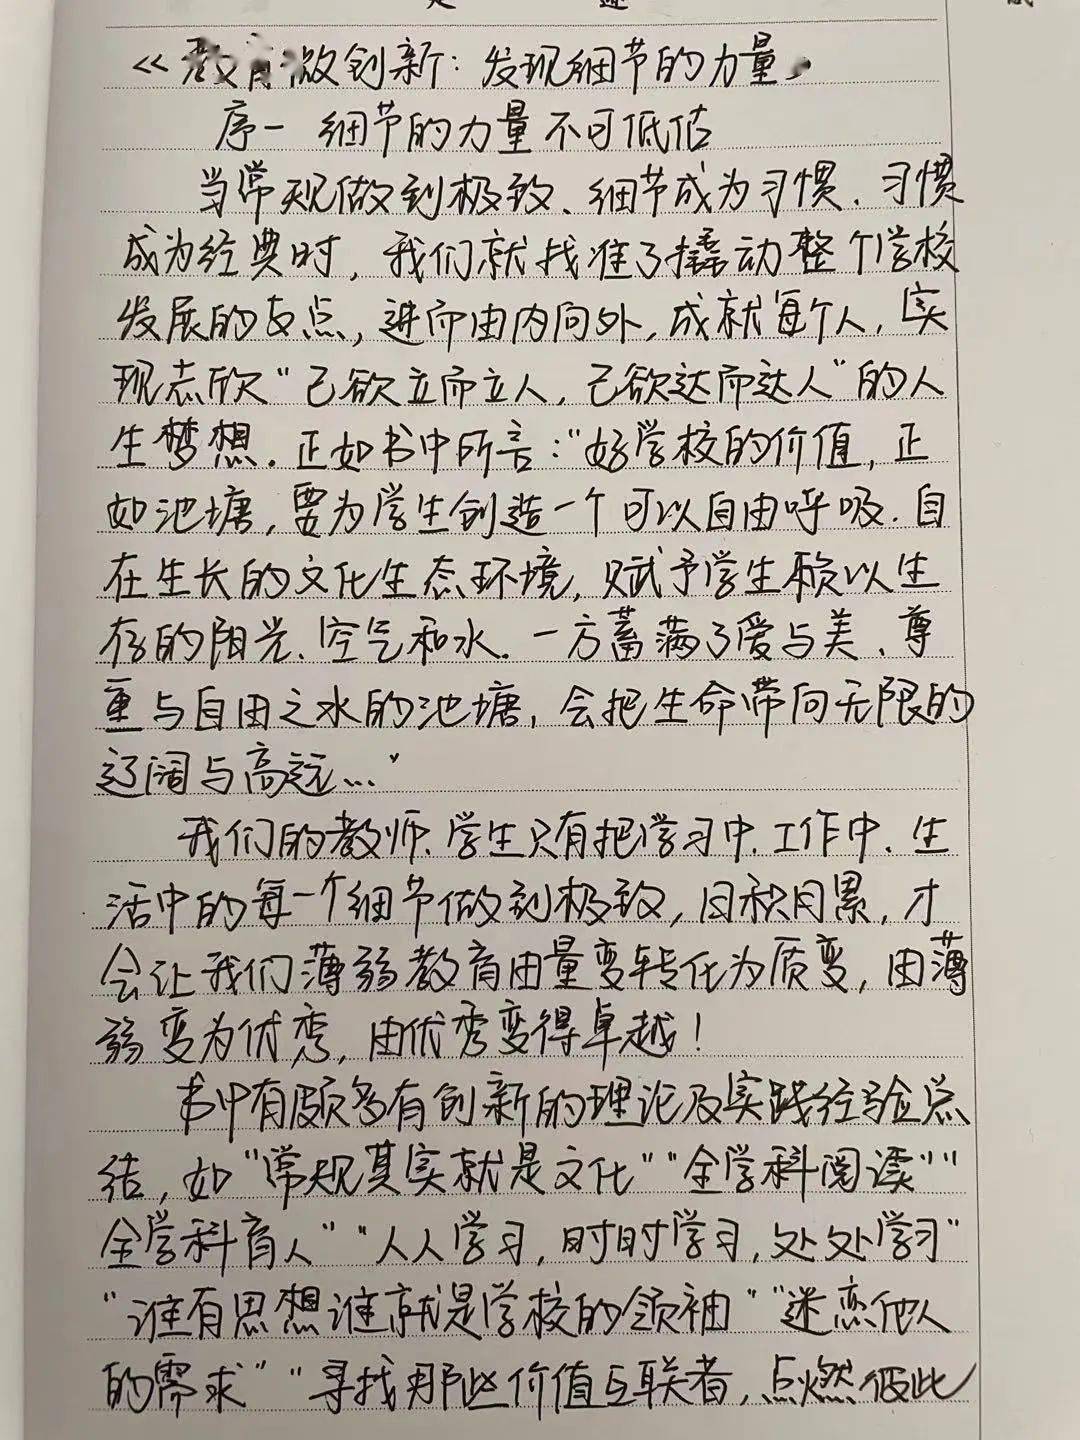 《教育微创新：发现细节的力量》
序一 细节的力量不可低估
当常规做到极致、细节成为习惯、习惯
成为经典时，我们就找准了撬动整个学校
发展的支点，进而由内向外，成就每个人，实
现志欣“己欲立而立人，己欲达而达人”的人
生梦想。正如书中所言：“好学校的价值，正
如池塘，要为学生创造一个可以自由呼吸、自
在生长的文化生态环境，赋予学生赖以生
存的阳光、空气和水。一方蓄满了爱与美、尊
重与自由之水的池塘，会把生命带向无限的
辽阔与高远…”
我们的教师、学生只有把学习中、工作中、生
活中的每一个细节做到极致，日积月累，才
会让我们薄弱教育由量变转化为质变，由薄
弱变为优秀，由优秀变得卓越！
书中有颇多有创新的理论及实践经验总
结，如“常规其实就是文化”“全学科阅读”“
全学科育人”“人人学习，时时学习，处处学习”
“谁有思想谁就是学校的领袖”“迷恋他人
的需求”“寻找那些价值互联者，点燃彼此